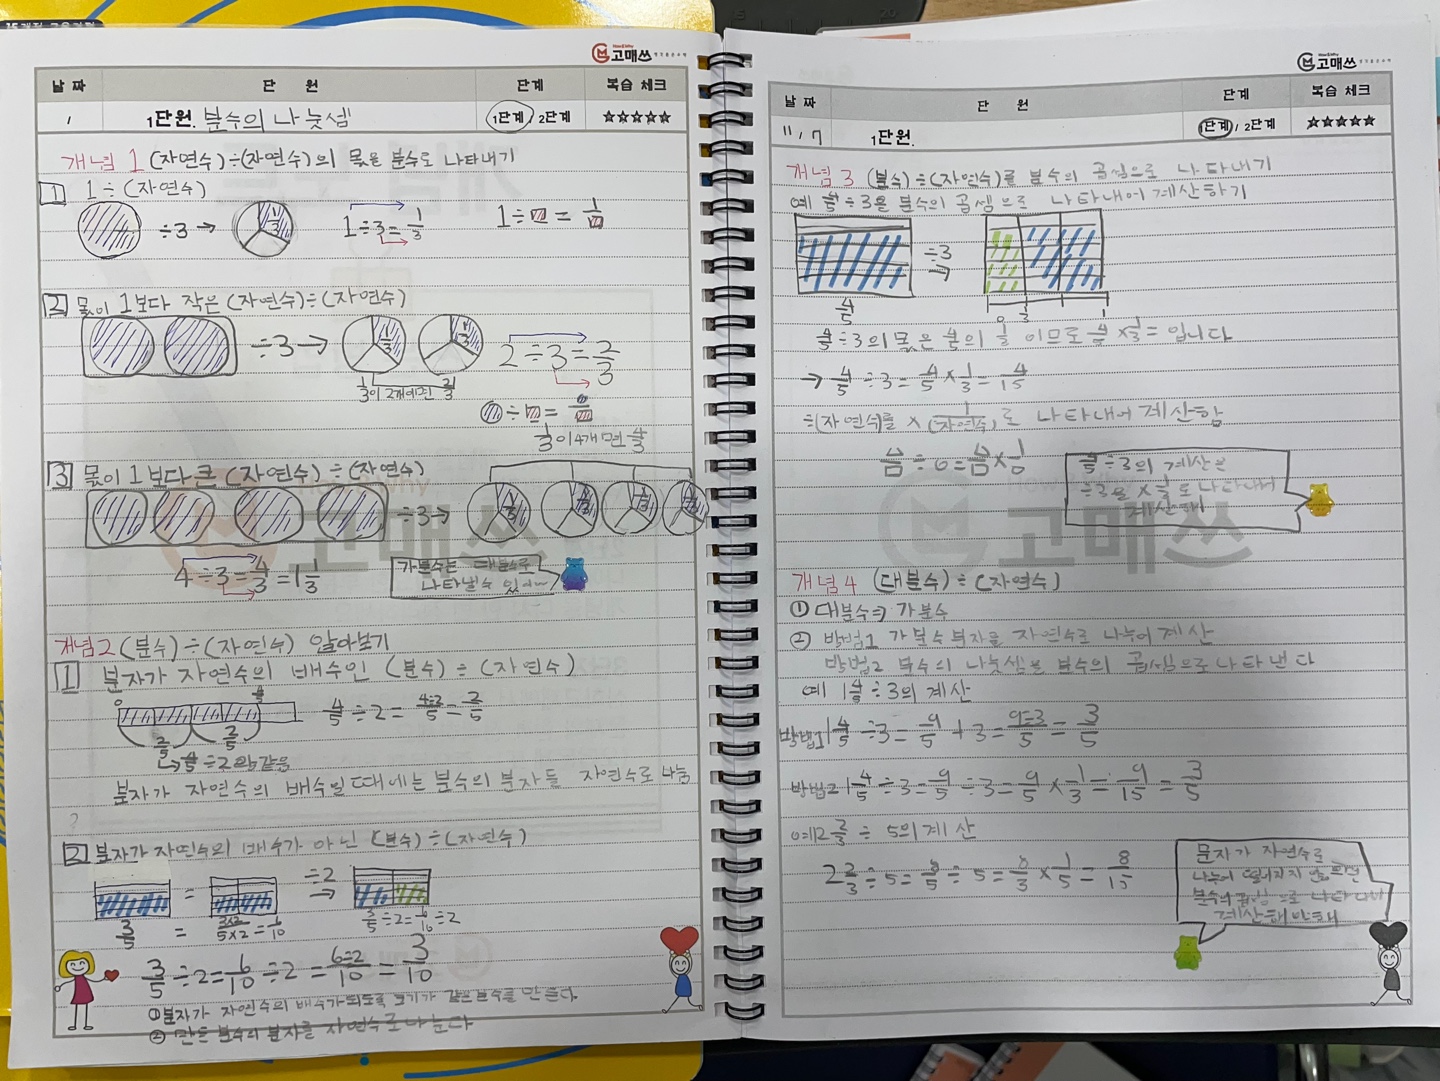 고매쓰
날짜 단 원 단계 복습 체크
1 1단원. 분수의 나눗셈 1단계 / 2단계 ☆☆☆☆☆
개념 1 (자연수)÷(자연수)의 몫을 분수로 나타내기
1 1÷(자연수)
÷3→ 1/3 1÷3=1/3 1÷□=1/□
2 몫이 1보다 작은 (자연수)÷(자연수)
÷3→ 1/3 1/3 2÷3=2/3
1/3이 2개이면 2/3
○÷□=○/□
1/3이 4개면 4/3
3 몫이 1보다 큰 (자연수)÷(자연수)
÷3→ 1/3 1/3 1/3 1/3
4÷3=4/3=1 1/3
가분수는 대분수로
나타낼 수 있어~
개념2 (분수)÷(자연수) 알아보기
1 분자가 자연수의 배수인 (분수)÷(자연수)
0 4/5
4/5÷2=4÷2/5=2/5
2/5 2/5
↳4/5÷2와 같음
분자가 자연수의 배수일 때에는 분수의 분자를 자연수로 나눔
?
2 분자가 자연수의 배수가 아닌 (분수)÷(자연수)
= ÷2 →
3/5 = 3×2/5×2=6/10 3/5÷2=6/10÷2
3/5÷2=6/10÷2=6÷2/10=3/10
①분자가 자연수의 배수가 되도록 크기가 같은 분수를 만든다
② 만든 분수의 분자를 자연수로 나눈다
고매쓰
날짜 단 원 단계 복습 체크
11/7 1단원. 1단계 / 2단계 ☆☆☆☆☆
개념 3 (분수)÷(자연수)를 분수의 곱셈으로 나타내기
예 4/5÷3을 분수의 곱셈으로 나타내어 계산하기
÷3 →
4/5 0 1/3 1
4/5÷3의 몫은 4/5의 1/3 이므로 4/5×1/3= 입니다
→ 4/5÷3=4/5×1/3=4/15
÷(자연수)를 ×1/(자연수)로 나타내어 계산함
4/5÷3의 계산은
÷3을 ×1/3로 나타내어
계산해
개념 4 (대분수)÷(자연수)
① 대분수⇒가분수
② 방법1 가분수 분자를 자연수로 나누어 계산
방법2 분수의 나눗셈을 분수의 곱셈으로 나타낸다
예 1 4/5÷3의 계산
방법1 1 4/5÷3=9/5÷3=9÷3/5=3/5
방법2 1 4/5÷3=9/5÷3=9/5×1/3=9/15=3/5
예 2 2/3÷5의 계산
2 2/3÷5=8/5÷5=8/3×1/5=8/15
분자가 자연수로
나누어 떨어지지 않으면
분수의 곱셈으로 나타내어
계산해야 돼